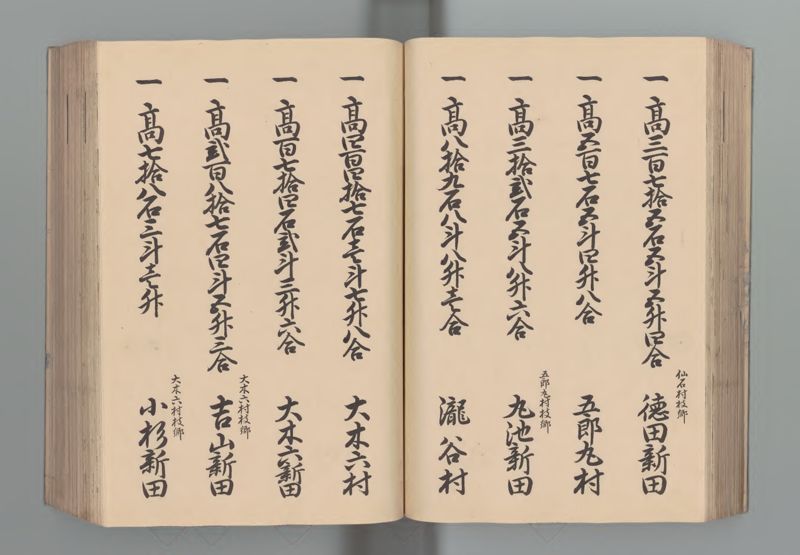 一 高三百七拾五石五斗五升四合
仙石村枝郷
徳田新田
一 高五百七石五斗四升八合
五郎丸村
一 高三拾弐石五斗八升六合
五郎丸村枝郷
九池新田
一 高八拾九石八斗八升壱合
瀧谷村
一 高四百四拾七石壱斗七升八合
大木六村
一 高百七拾四石弐斗三升六合
大木六新田
一 高弐百八拾七石四斗五升三合
大木六村枝郷
吉山新田
一 高七拾八石三斗壱升
大木六村枝郷
小杉新田